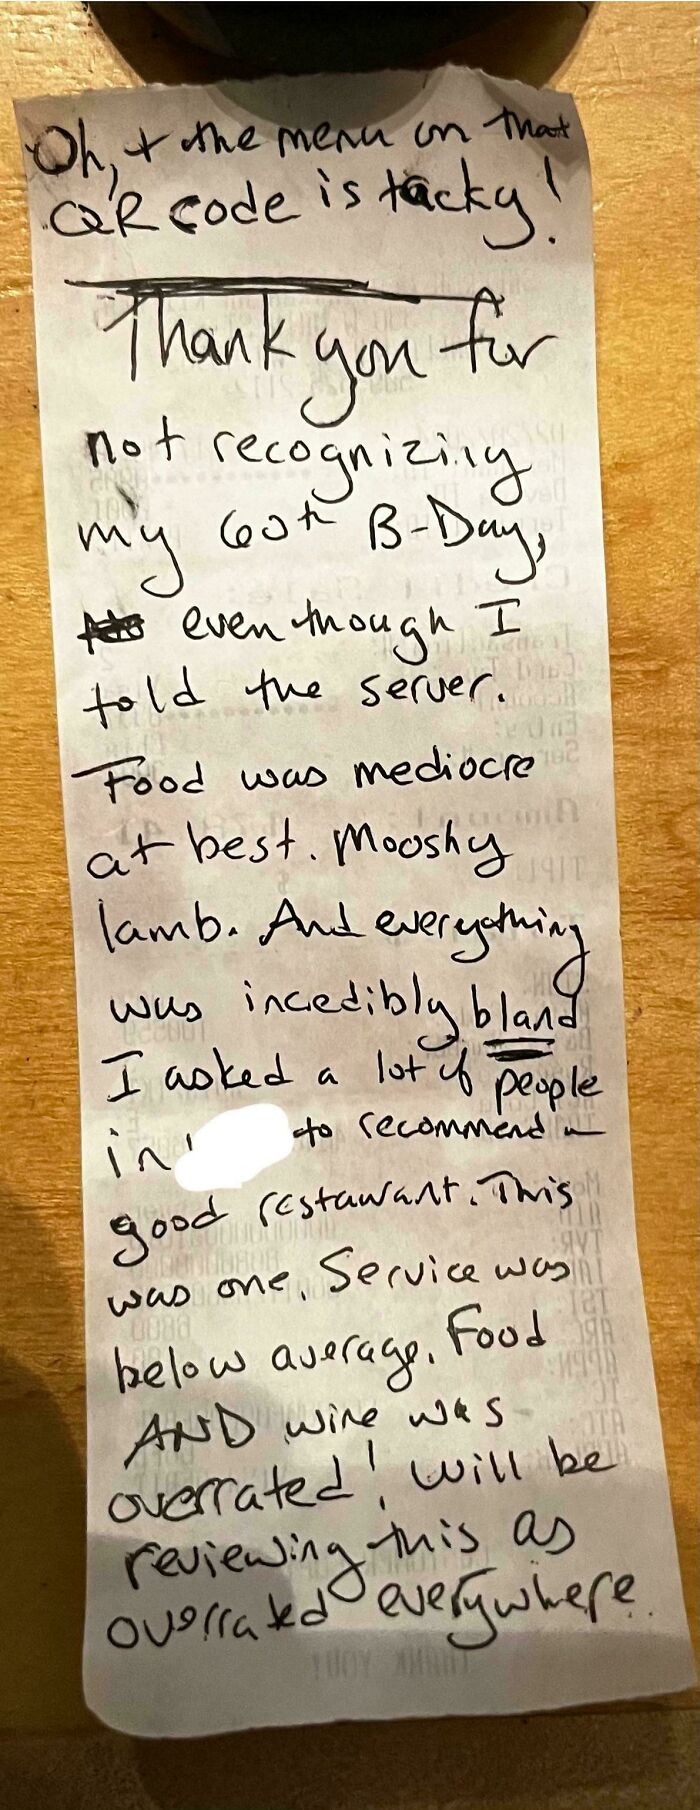 Oh, + the menu on that
QR code is tacky!
Thank you for
not recognizing
my 60th B-Day,
even though I
told the server.
Food was mediocre
at best. Mooshy
lamb. And everything
was incredibly bland
I asked a lot of people
in to recommend a
good restaurant. This
was one. Service was
below average. Food
AND wine was
overrated! Will be
reviewing this as
overrated everywhere.
THANK YOU!